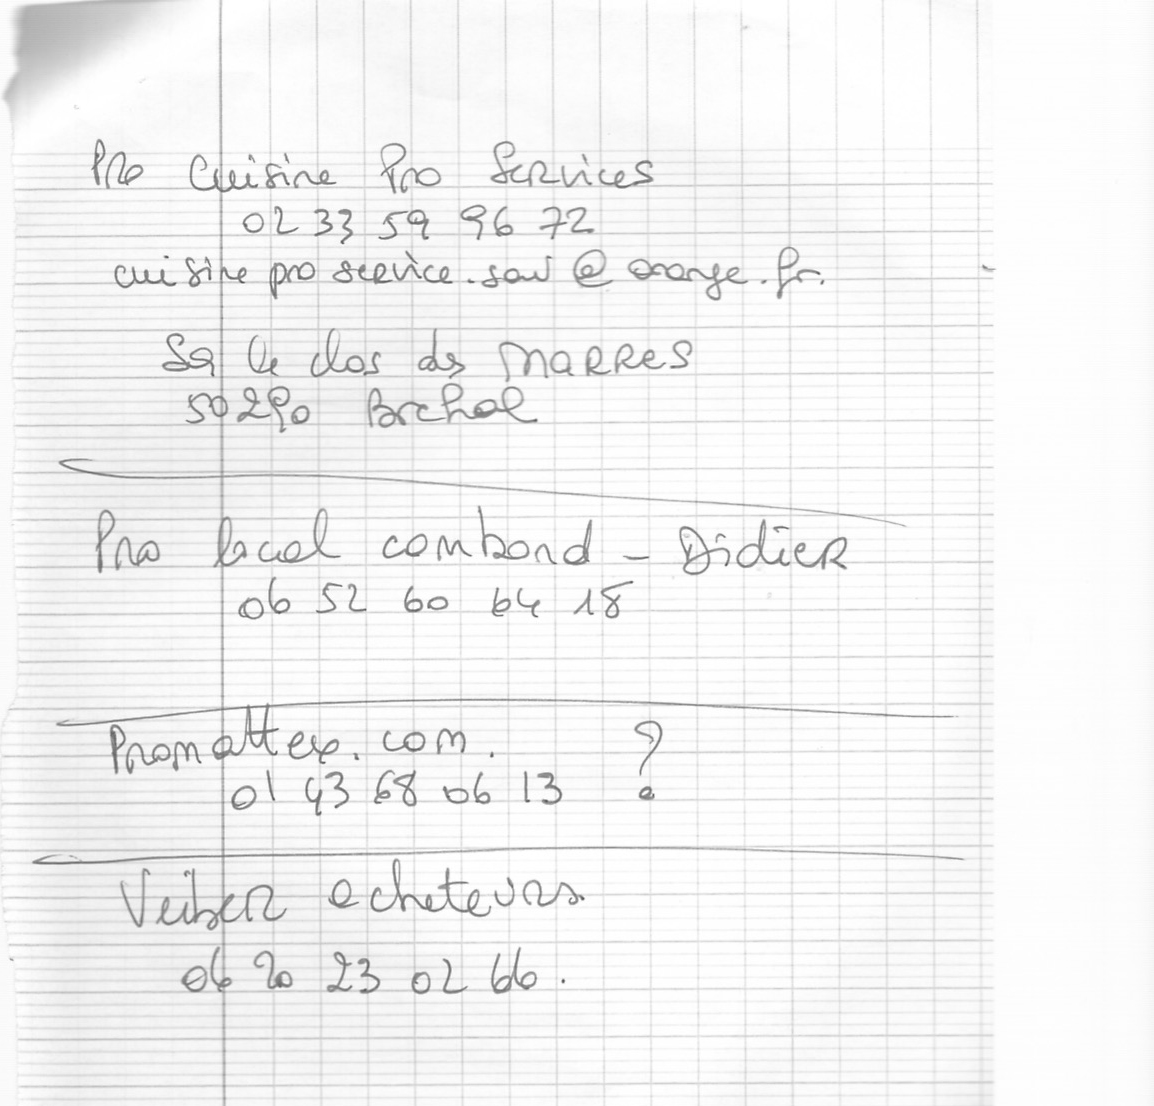 Pro Cuisine Pro Services
02 33 59 96 72
cuisine pro service.sav @ orange.fr.
59 le clos des MARRES
50290 Brehal
Pro local combond - Didier
06 52 60 64 18
Promattex.com. ?
01 43 68 06 13
acheteurs.
06 20 23 02 66.